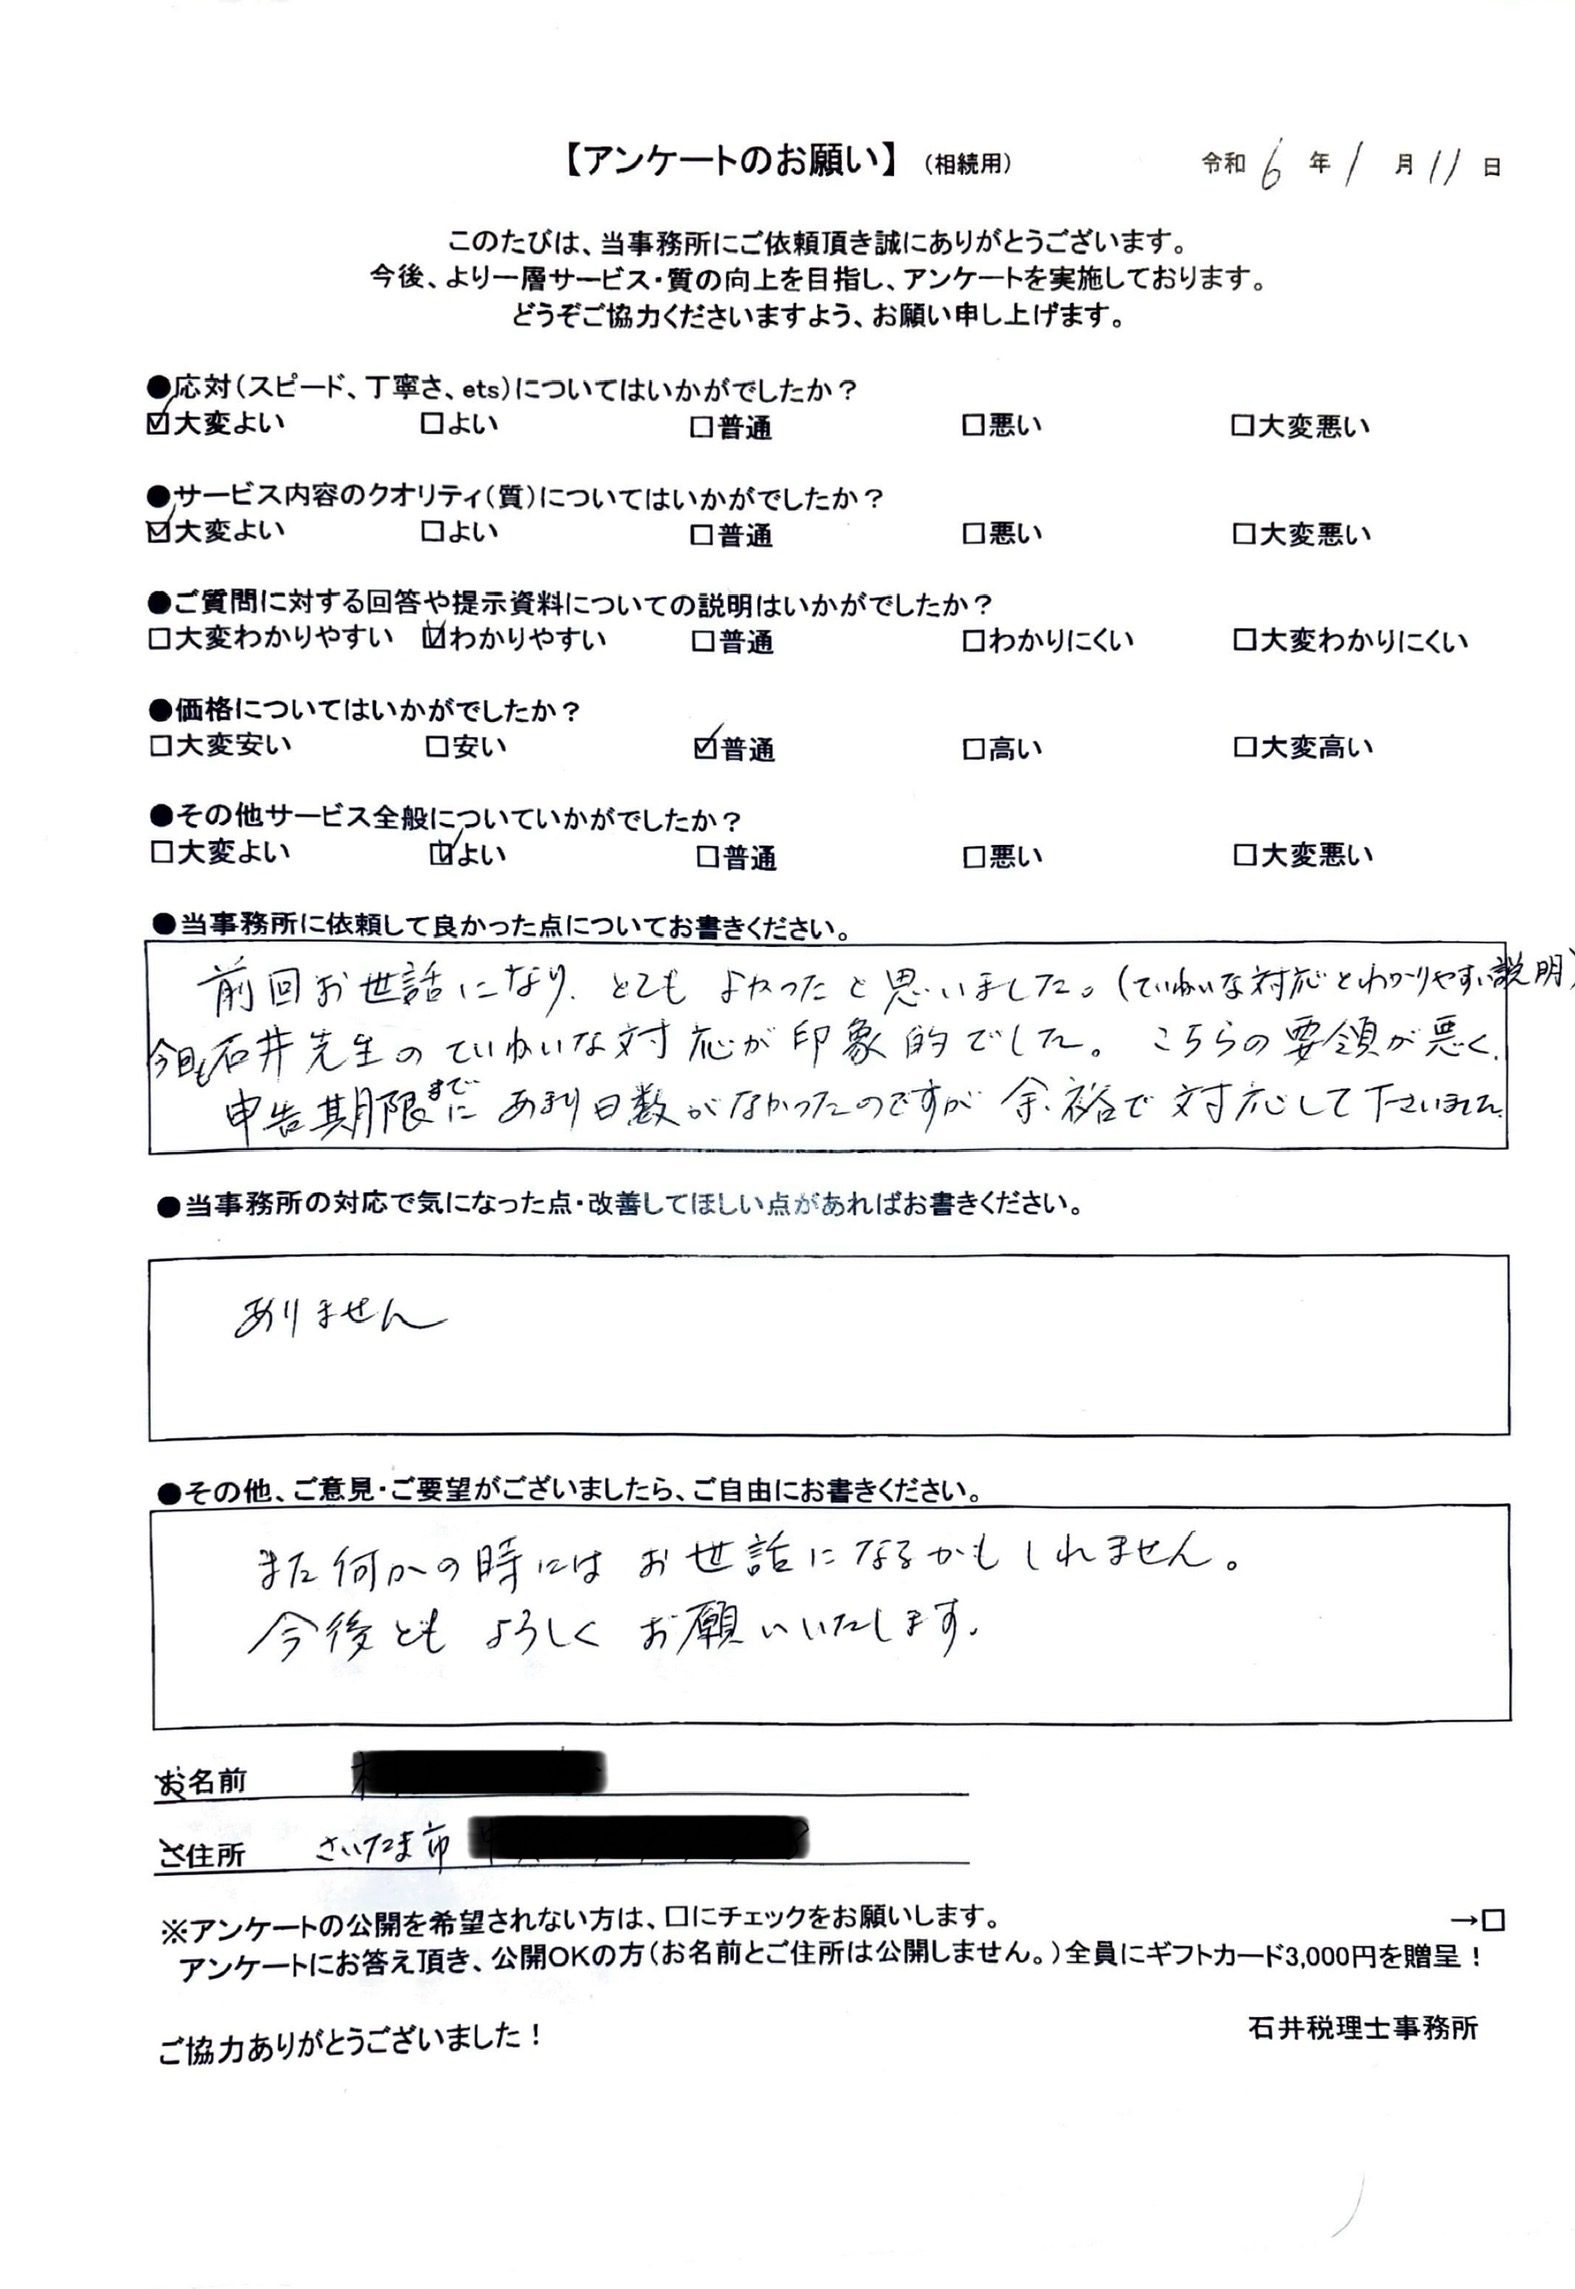 【アンケートのお願い】（相続用） 令和 6 年 1 月 11 日
このたびは、当事務所にご依頼頂き誠にありがとうございます。
今後、より一層サービス・質の向上を目指し、アンケートを実施しております。
どうぞご協力くださいますよう、お願い申し上げます。
●応対（スピード、丁寧さ、ets）についてはいかがでしたか？
☑大変よい □よい □普通 □悪い □大変悪い
●サービス内容のクオリティ（質）についてはいかがでしたか？
☑大変よい □よい □普通 □悪い □大変悪い
●ご質問に対する回答や提示資料についての説明はいかがでしたか？
□大変わかりやすい ☑わかりやすい □普通 □わかりにくい □大変わかりにくい
●価格についてはいかがでしたか？
□大変安い □安い ☑普通 □高い □大変高い
●その他サービス全般についていかがでしたか？
□大変よい ☑よい □普通 □悪い □大変悪い
●当事務所に依頼して良かった点についてお書きください。
前回お世話になり、とてもよかったと思いました。（ていねいな対応とわかりやすい説明）
今回も石井先生のていねいな対応が印象的でした。こちらの要領が悪く、
申告期限までにあまり日数がなかったのですが余裕で対応して下さいました。
●当事務所の対応で気になった点・改善してほしい点があればお書きください。
ありません
●その他、ご意見・ご要望がございましたら、ご自由にお書きください。
また何かの時にはお世話になるかもしれません。
今後ともよろしくお願いいたします。
お名前
ご住所 さいたま市
※アンケートの公開を希望されない方は、□にチェックをお願いします。 →□
アンケートにお答え頂き、公開OKの方（お名前とご住所は公開しません。）全員にギフトカード3,000円を贈呈！
ご協力ありがとうございました！ 石井税理士事務所